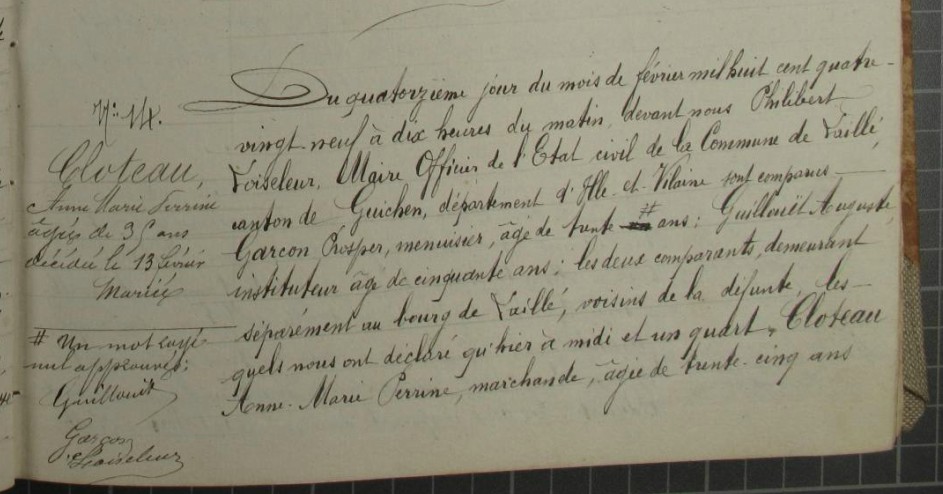 N: 14.
Cloteau,
Anne Marie Perrine
âgée de 35 ans
décédée le 13 février
Mariée
# Un mot rayé
nul approuvé;
Guillouët
Garçon
Loiseleur
Du quatorzième jour du mois de février mil huit cent quatre-
vingt-neuf à dix heures du matin, devant nous Philibert
Loiseleur, Maire Officier de l'Etat civil de la Commune de Laillé,
canton de Guichen, département d'Ille-et-Vilaine sont comparus
Garçon Prosper, menuisier, âgé de trente # ans; Guillouët Auguste,
instituteur âgé de cinquante ans; les deux comparants, demeurant
séparément au bourg de Laillé, voisins de la défunte, les-
quels nous ont déclaré qu'hier à midi et un quart, Cloteau
Anne-Marie Perrine, marchande, âgée de trente-cinq ans